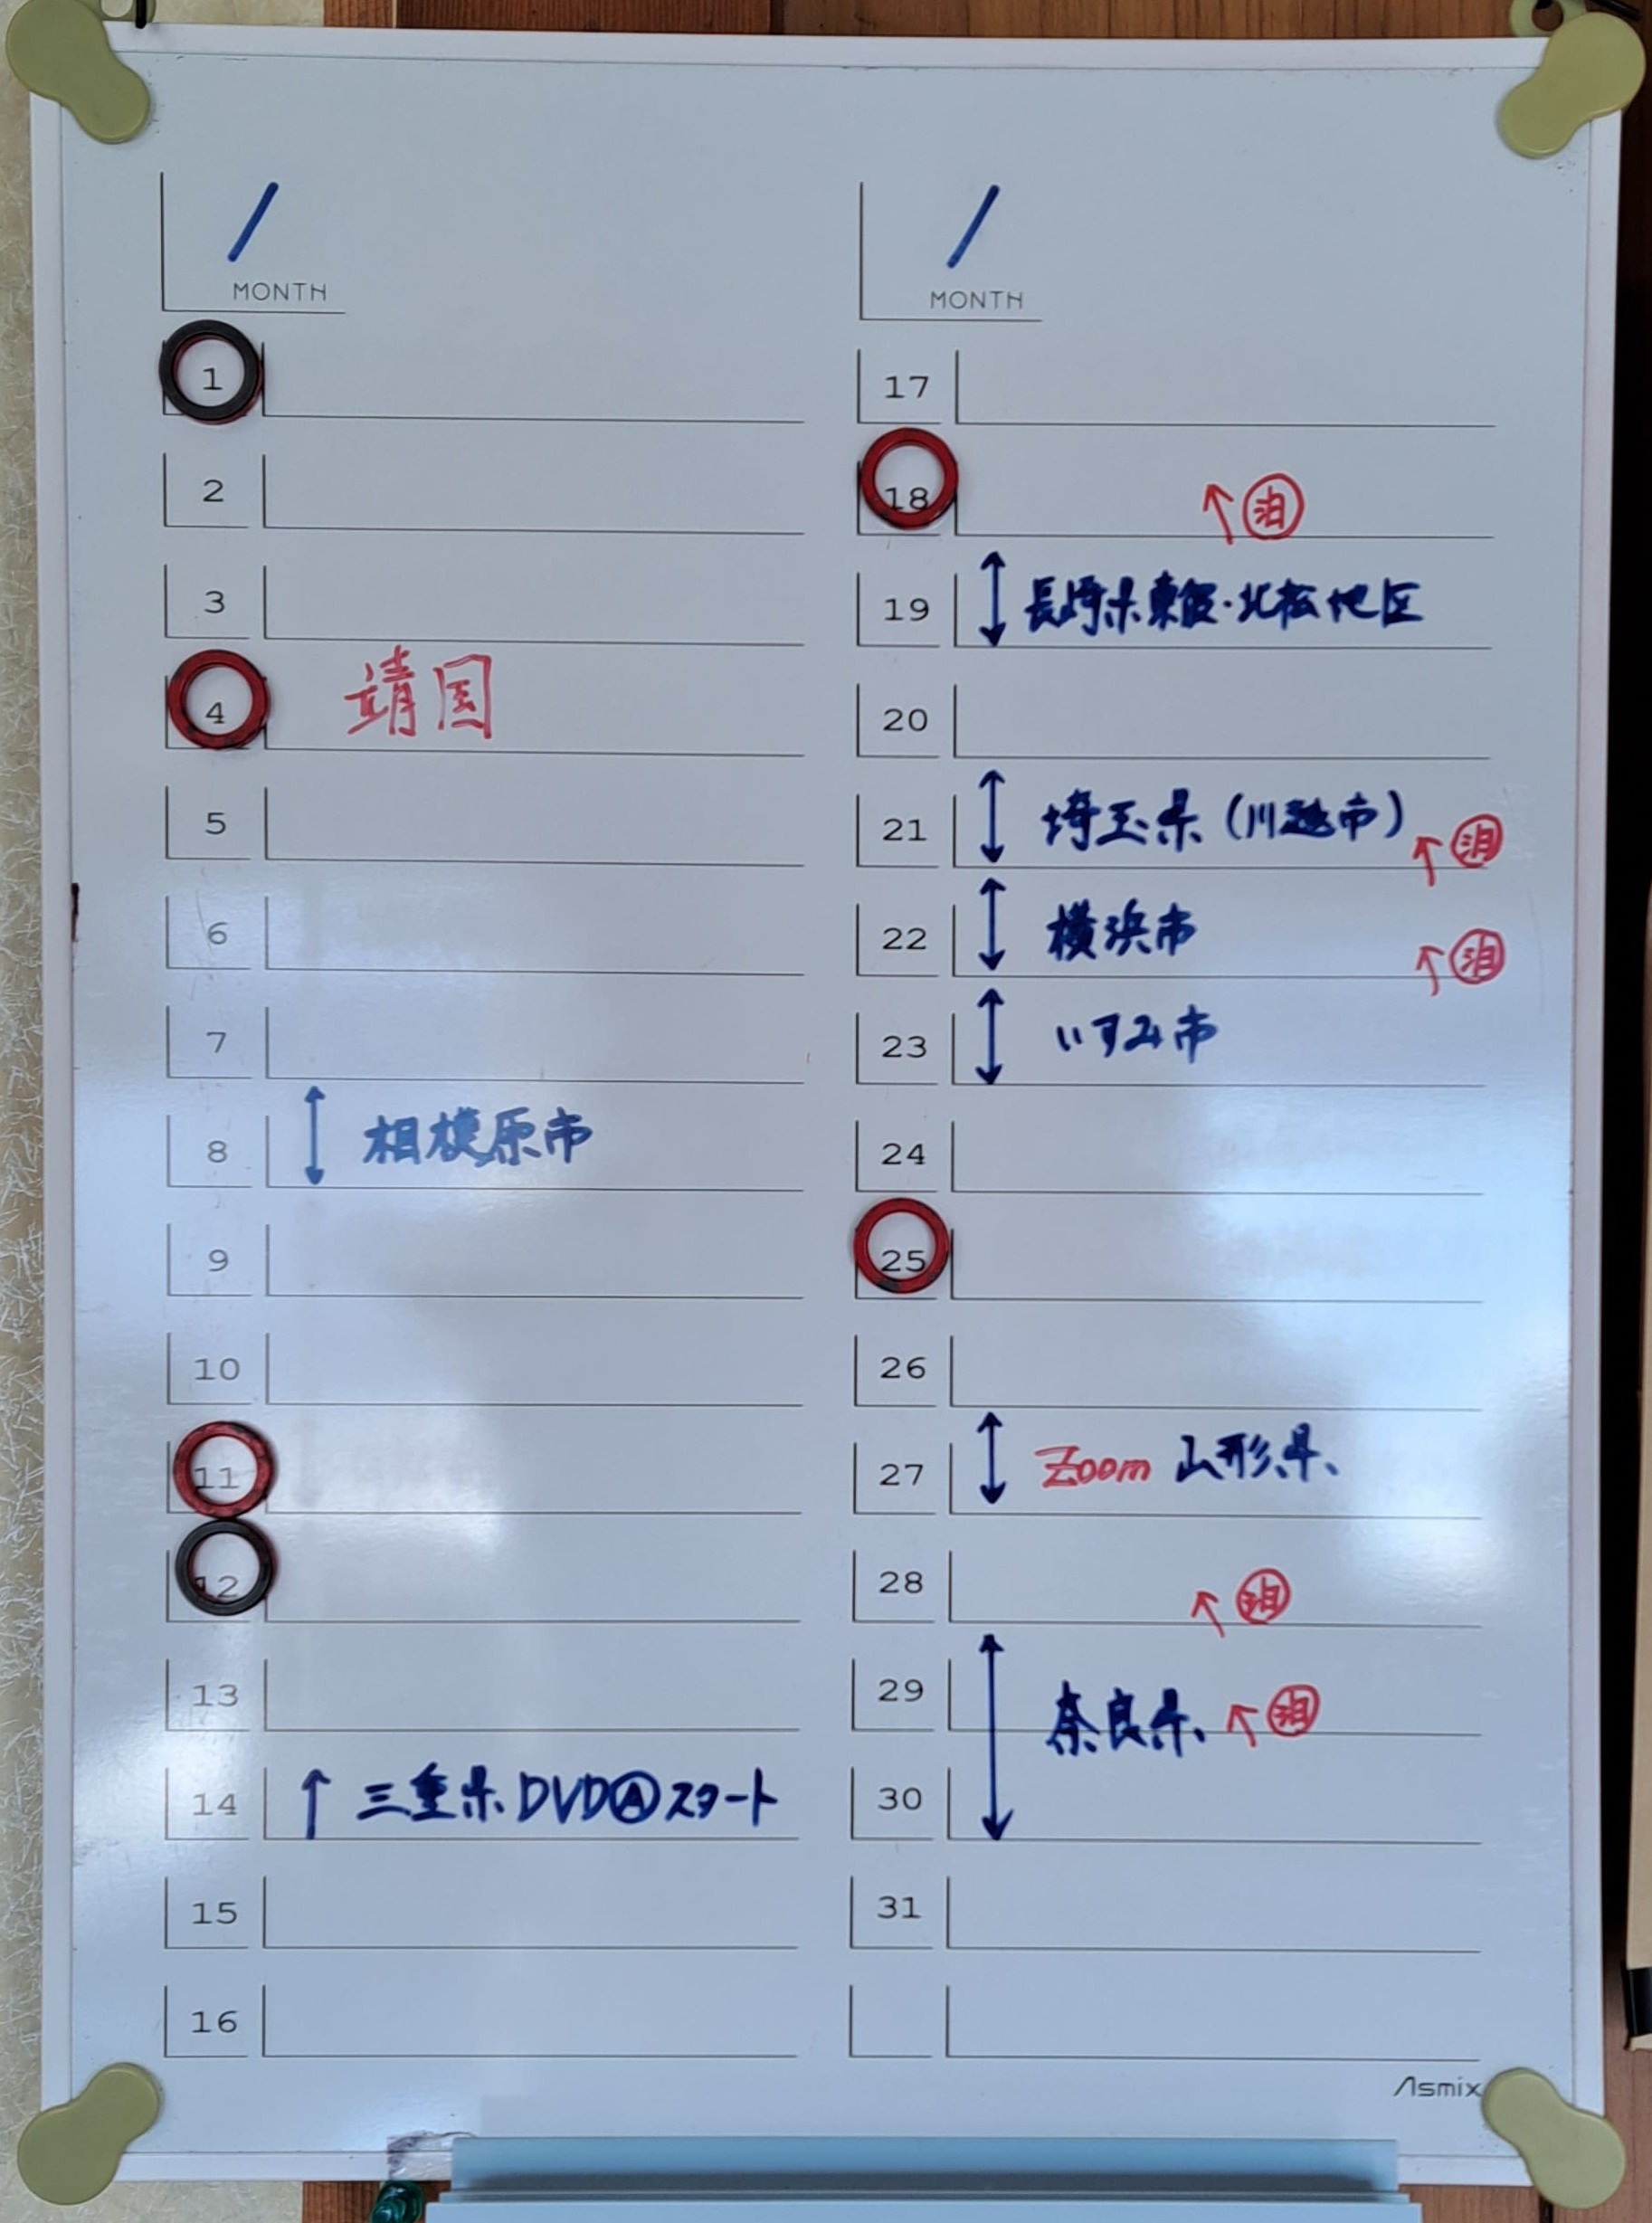 /
MONTH
1
2
3
4 靖国
5
6
7
8 相模原市
9
10
11
12
13
14 ↑ 三重県 DVDⒶスタート
15
16
/
MONTH
17
18 ↑ 泊
19 長崎県東彼・北松地区
20
21 埼玉県(川越市) ↑ 泊
22 横浜市 ↑ 泊
23 いすみ市
24
25
26
27 Zoom 山形県
28 ↑ 泊
29 奈良県 ↑ 泊
30
31
Asmix